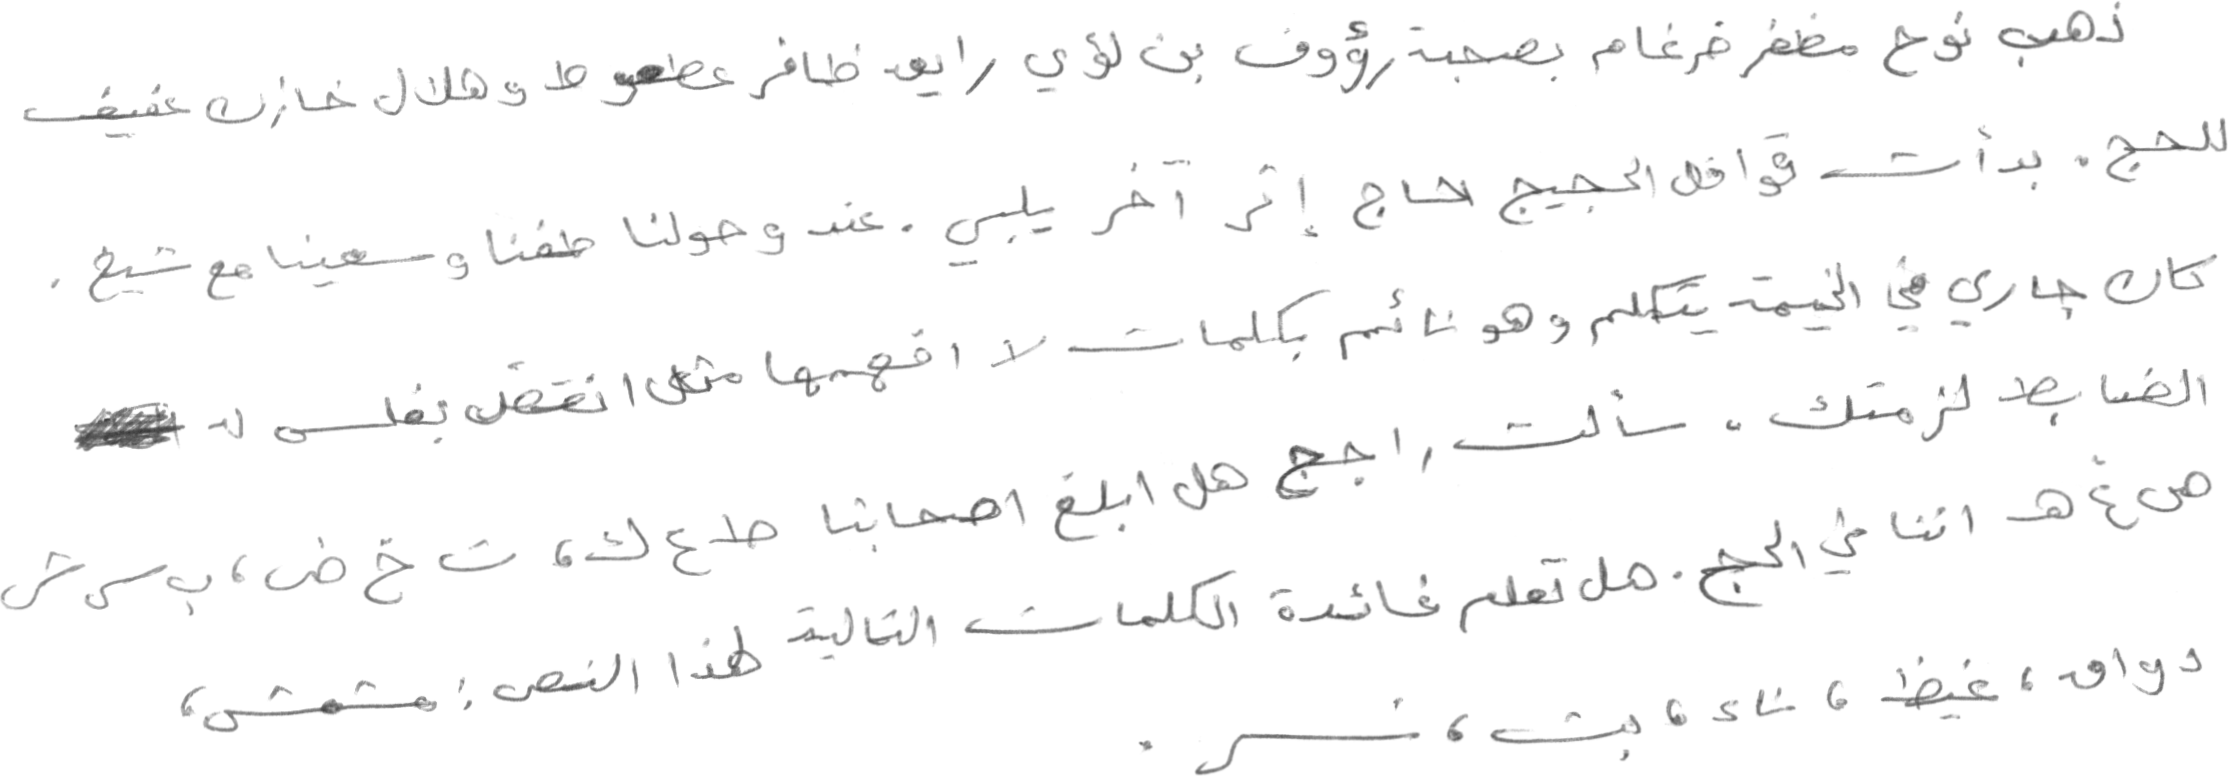 ذهب نوح مظفر ضرغام بصحبة رؤوف بن لؤي رايق ظافر عطعوط وهلال خازن عفيف
للحج. بدأت قوافل الحجيج لحاج إثر آخر يلبي. عند وصولنا طفنا وسعينا مع شيخ.
كان جاري في الخيمة يتكلم وهو نائم بكلمات لا افهمها مثل انقتضل بغلس له
الضابط لزمتك. سألت راجح هل ابلغ اصحابنا ط ع ك، ت خ ض، ب س ش
ص غ هـ اننا في الحج. هل تعلم فائدة الكلمات التالية لهذا النص: مشمش،
دواق، غيظ، ناء، بث، نسر.